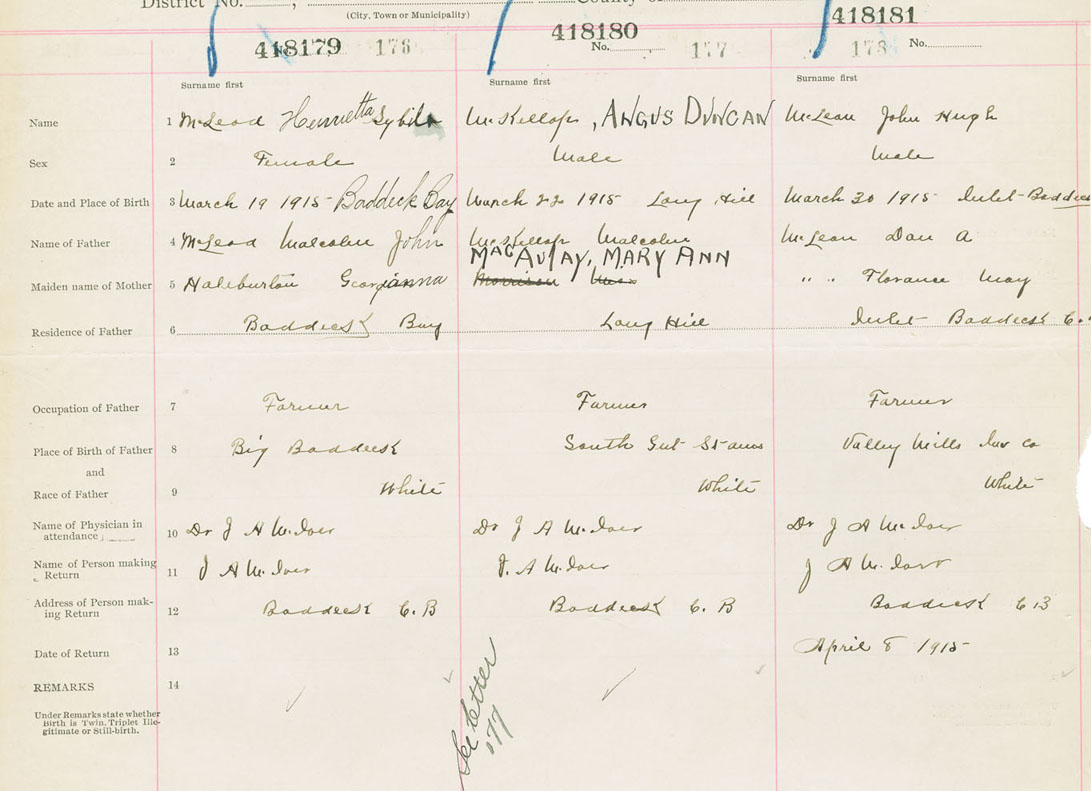 District No. , County of
(City, Town or Municipality)
418179 176 418180 No. 177 418181 178 No.
Surname first Surname first Surname first
Name 1 McLeod Henrietta Sybil McKillop, ANGUS DUNCAN McLean John Hugh
Sex 2 Female Male Male
Date and Place of Birth 3 March 19 1915 Baddeck Bay March 22 1915 Long Hill March 30 1915 Inlet Baddeck
Name of Father 4 McLeod Malcolm John McKillop Malcolm McLean Dan A
MacAulay, MARY ANN
Maiden name of Mother 5 Haliburton Georgianna Morrison " " Florance May
Residence of Father 6 Baddeck Bay Long Hill Inlet Baddeck C.
Occupation of Father 7 Farmer Farmer Farmer
Place of Birth of Father 8 Big Baddeck South Gut St anns Valley Mills Inv Co
and
Race of Father 9 White White White
Name of Physician in
attendance 10 Dr J A McIver Dr J A McIver Dr J A McIver
Name of Person making
Return 11 J A McIver J. A McIver J A McIver
Address of Person mak-
ing Return 12 Baddeck C. B Baddeck C. B Baddeck C B
Date of Return 13 April 8 1915
REMARKS 14
Under Remarks state whether
Birth is Twin, Triplet Ille-
gitimate or Still-birth.
See letter
077